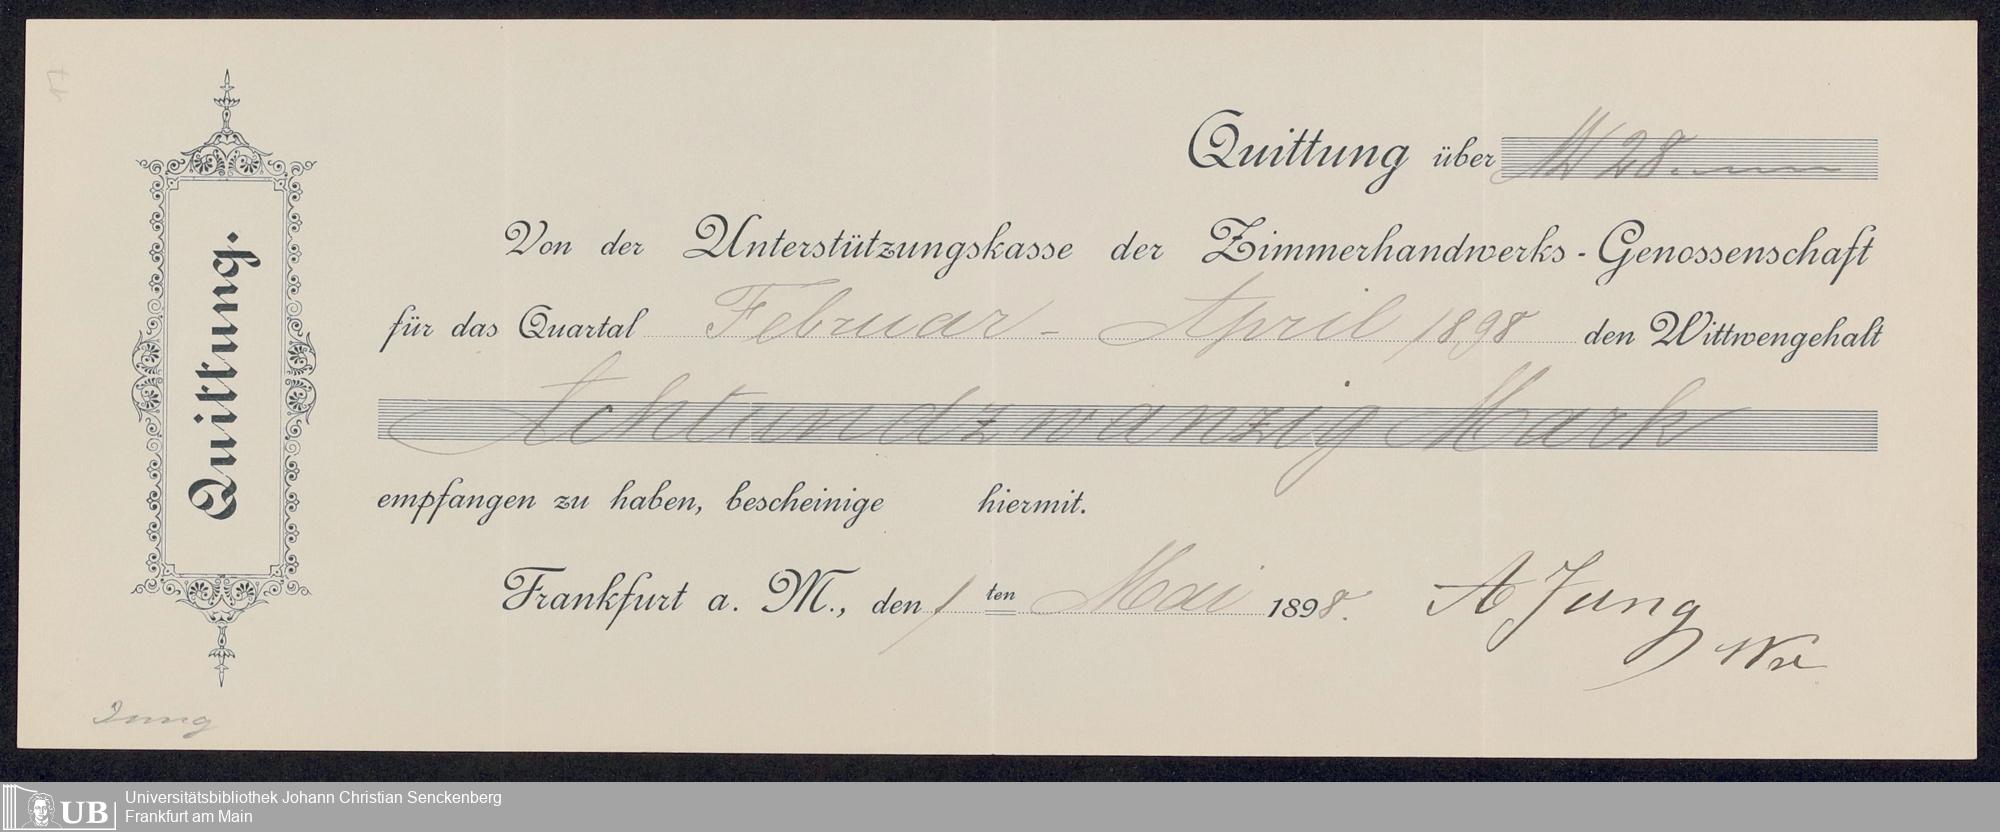 Quittung.
Quittung über M 28.
Von der Unterstützungskasse der Zimmerhandwerks-Genossenschaft
für das Quartal Februar - April 1898 den Wittwengehalt
Achtundzwanzig Mark
empfangen zu haben, bescheinige hiermit.
Frankfurt a. M., den 1 ten Mai 1898.
A Jung
Wwe
Jung
UB
Universitätsbibliothek Johann Christian Senckenberg
Frankfurt am Main